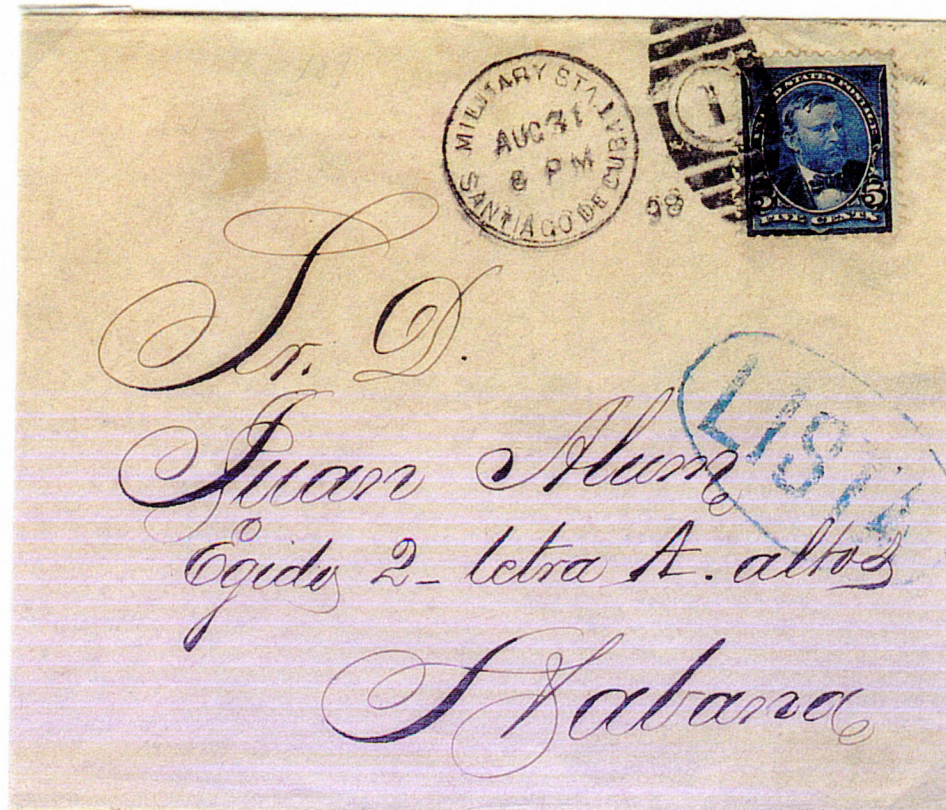 MILITARY STA. 1.
AUG 31
8 PM
SANTIAGO DE CUBA
98
1
UNITED STATES POSTAGE
5 5
FIVE CENTS
Sr. D.
LISTA
Juan Alum
Egido 2 - letra A. altos
Habana